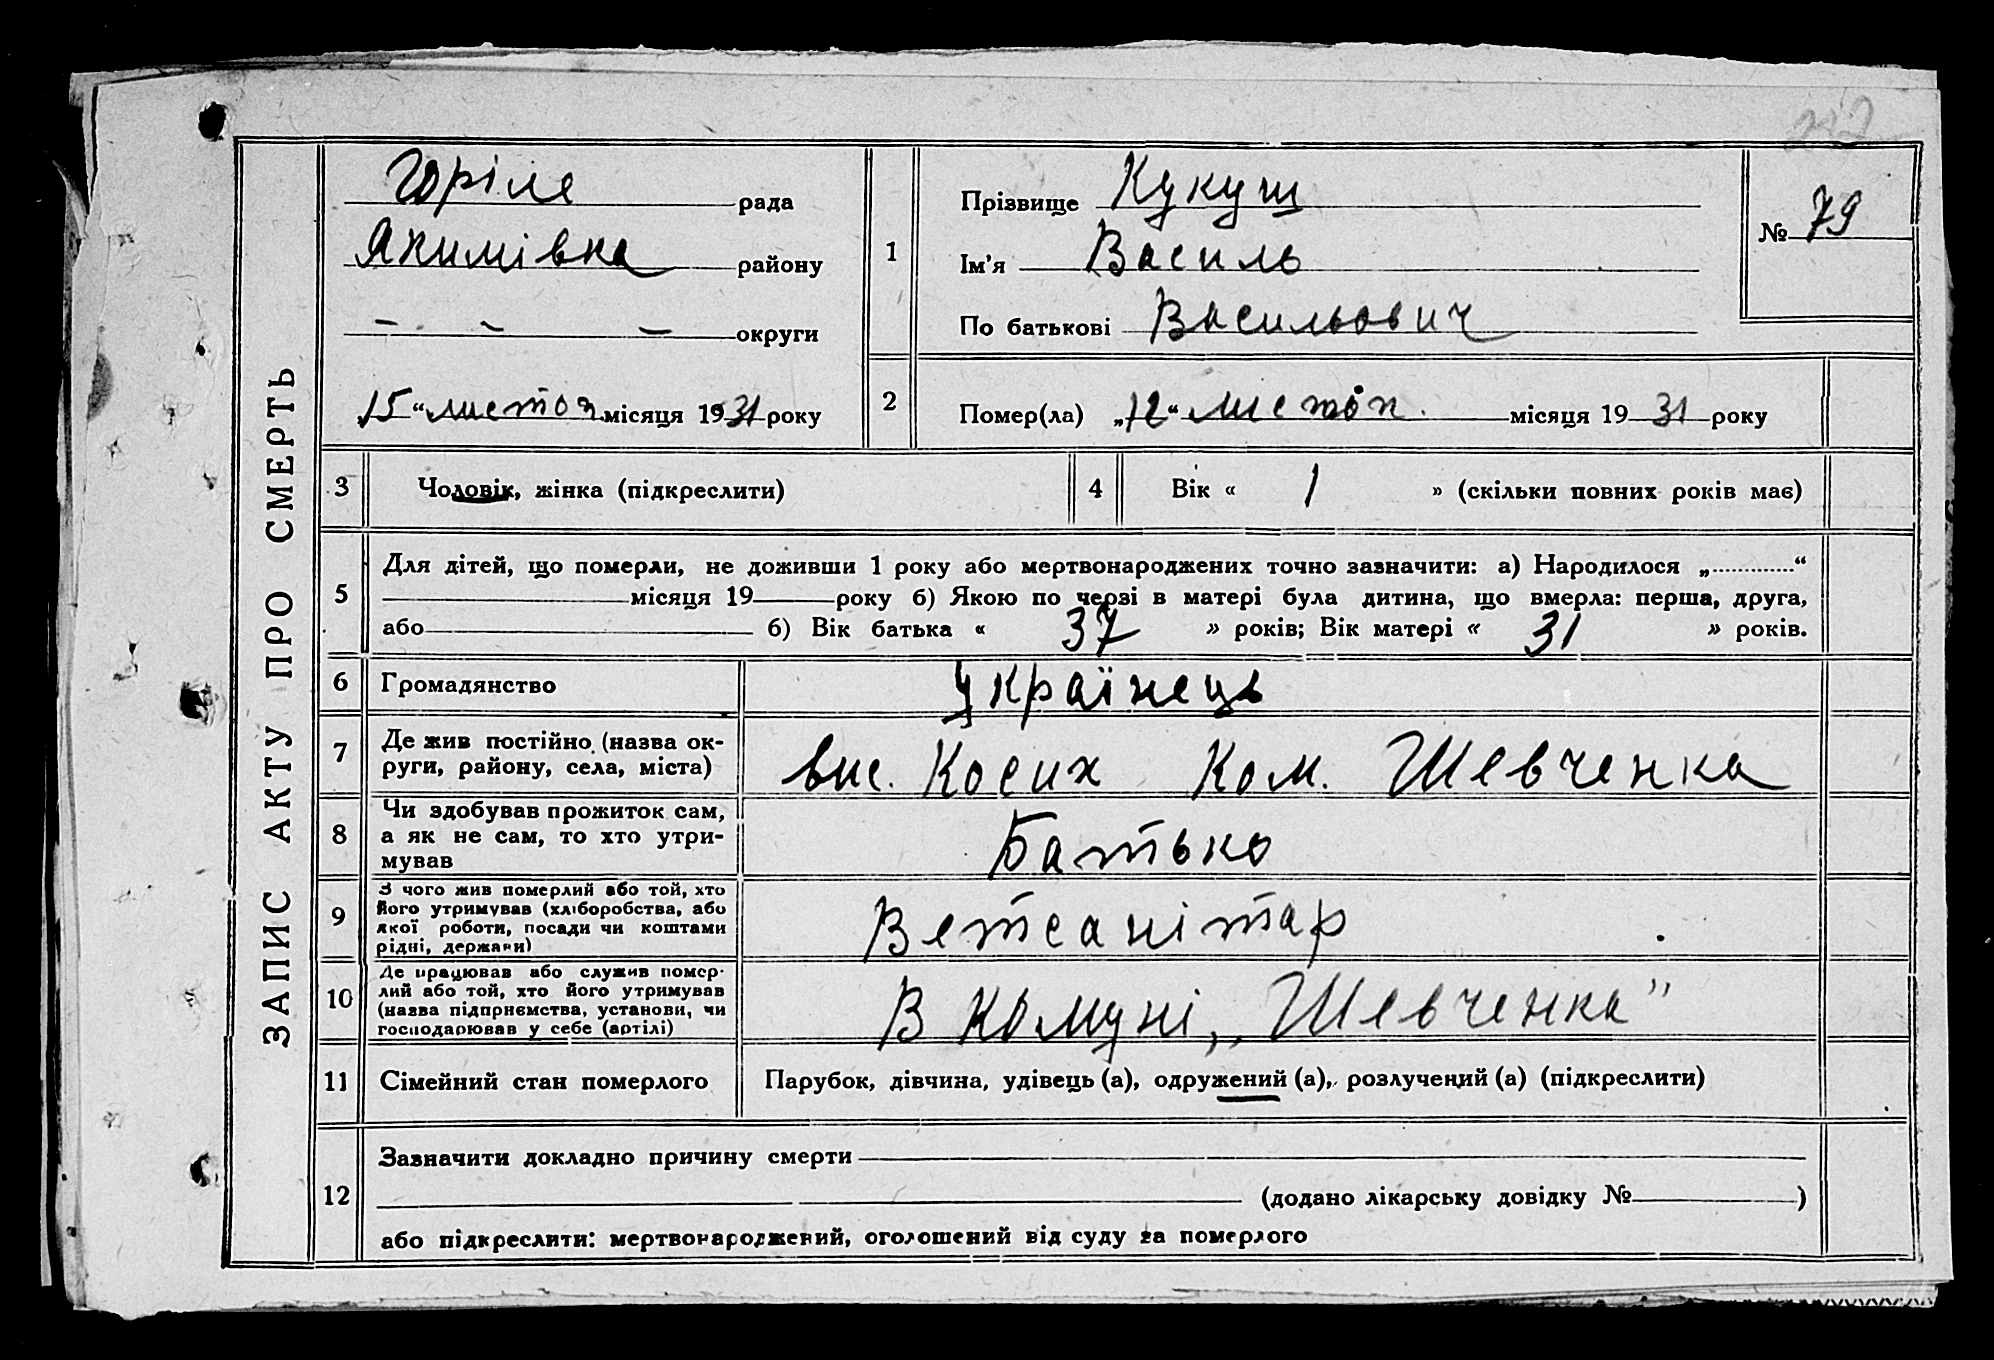 ЗАПИС АКТУ ПРО СМЕРТЬ
Горіле рада
Якимівка районy
— — — округи
15 “ листоп місяця 1931 року
1
Прізвище Кукуш
Ім'я Василь
По батькові Васильович
№ 79
2
Помер(ла) „12“ листоп. місяця 1931 року
3
Чоловік, жінка (підкреслити)
4
Вік « 1 » (скільки повних років має)
5
Для дітей, що померли, не доживши 1 року або мертвонароджених точно зазначити: а) Народилося „............“
місяця 19 року б) Якою по черзі в матері була дитина, що вмерла: перша, друга,
або б) Вік батька « 37 » років; Вік матері « 31 » років.
6
Громадянство
Українець
7
Де жив постійно (назва ок-
руги, району, села, міста)
вис. Косих Ком. Шевченка
8
Чи здобував прожиток сам,
а як не сам, то хто утри-
мував
Батько
9
З чого жив померлий або той, хто
його утримував (хліборобства, або
якої роботи, посади чи коштами
рідні, держави)
Ветсанітар
10
Де працював або служив помер-
лий або той, хто його утримував
(назва підприємства, установи, чи
господарював у себе (артілі)
В комуні „Шевченка”
11
Сімейний стан померлого
Парубок, дівчина, удівець (а), одружений (а), розлучений (а) (підкреслити)
12
Зазначити докладно причину смерти
(додано лікарську довідку № )
або підкреслити: мертвонароджений, оголошений від суду за померлого